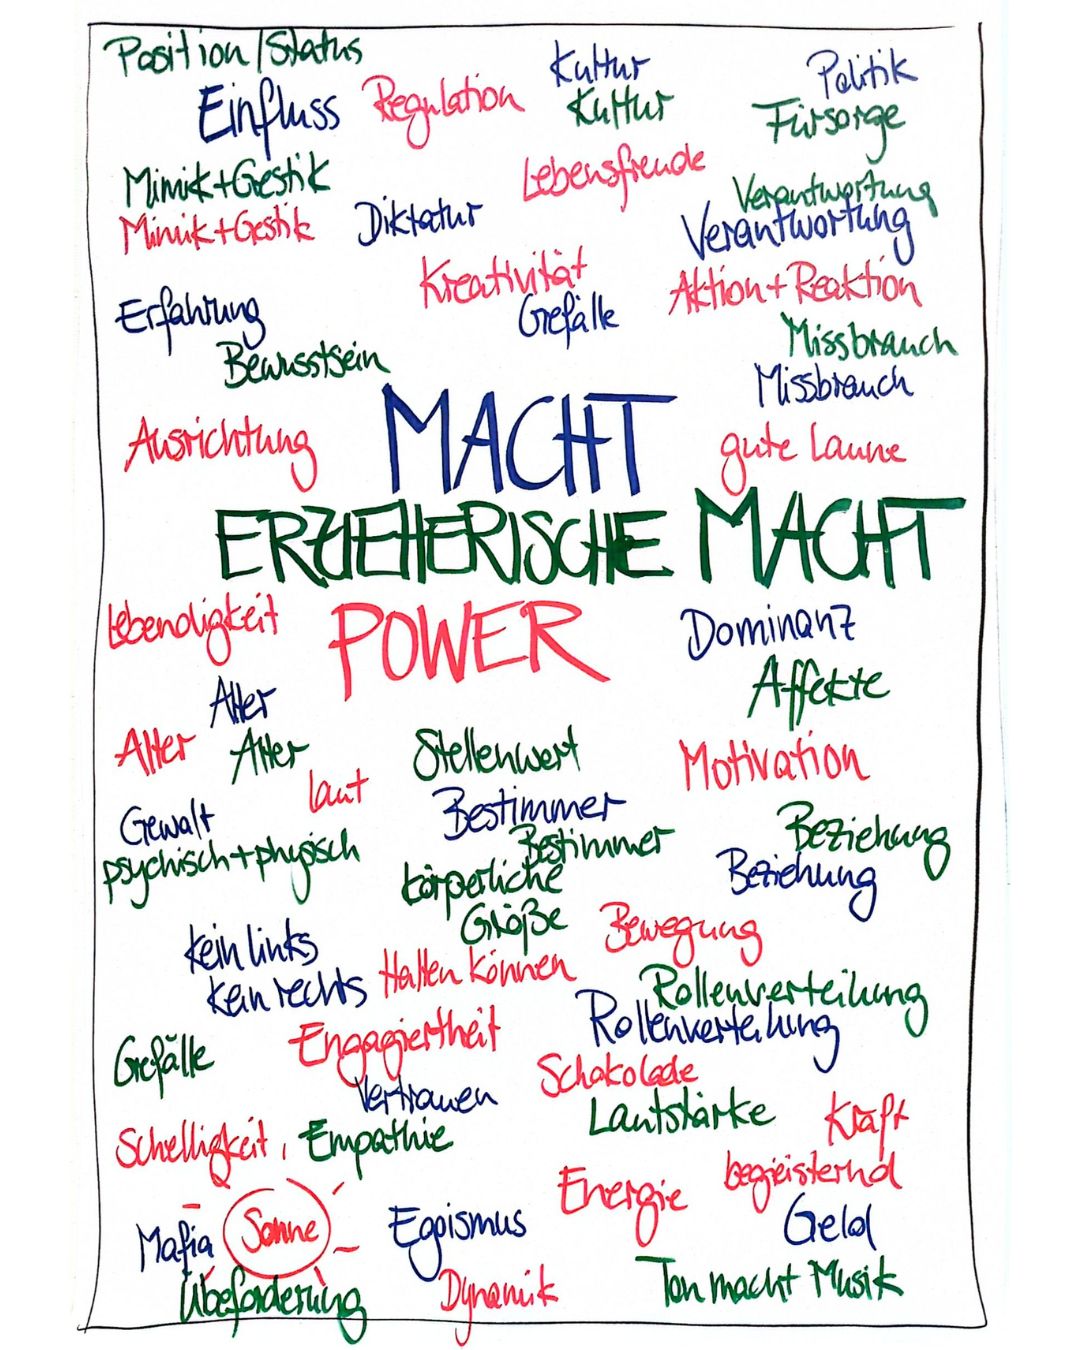 Position/Status
Kultur
Politik
Einfluss
Regulation
Kultur
Fürsorge
Mimik+Gestik
Lebensfreude
Verantwortung
Mimik+Gestik
Diktatur
Verantwortung
Kreativität
Aktion+Reaktion
Erfahrung
Gefälle
Missbrauch
Bewusstsein
Missbrauch
MACHT
Ausrichtung
gute Laune
ERZIEHERISCHE MACHT
Lebendigkeit
POWER
Dominanz
Affekte
Alter
Alter
Alter
Stellenwert
Motivation
laut
Gewalt
Bestimmer
Beziehung
psychisch+physisch
Bestimmer
Beziehung
körperliche
Größe
Bewegung
kein links
kein rechts
Halten können
Rollenverteilung
Rollenverteilung
Gefälle
Engagiertheit
Schokolade
Vertrauen
Lautstärke
Kraft
Schelligkeit,
Empathie
begeisternd
Energie
Mafia
Sonne
Egoismus
Geld
Übeforderung
Dynamik
Ton macht Musik